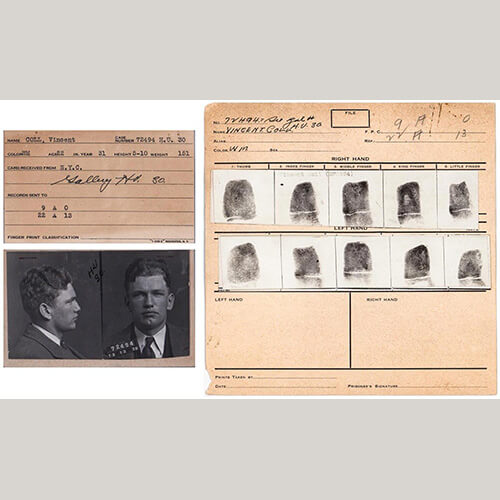 NAME COLL, Vincent NUMBER 72494 H.U. 30
COLOR WM AGE 22 IN YEAR 31 HEIGHT 5-10 WEIGHT 151
CARD RECEIVED FROM N.Y.C.
RECORDS SENT TO
9 A 0
22 A 13
FINGER PRINT CLASSIFICATION
72494
FILE
NO. 72494
NAME VINCENT COLL H.U. 30
ALIAS
COLOR WM SEX
F. P. C. 9 A 0
22 A 13
RIGHT HAND
1. THUMB 2. INDEX FINGER 3. MIDDLE FINGER 4. RING FINGER 5. LITTLE FINGER
LEFT HAND
LEFT HAND RIGHT HAND
PRINTS TAKEN BY
DATE PRISONER'S SIGNATURE